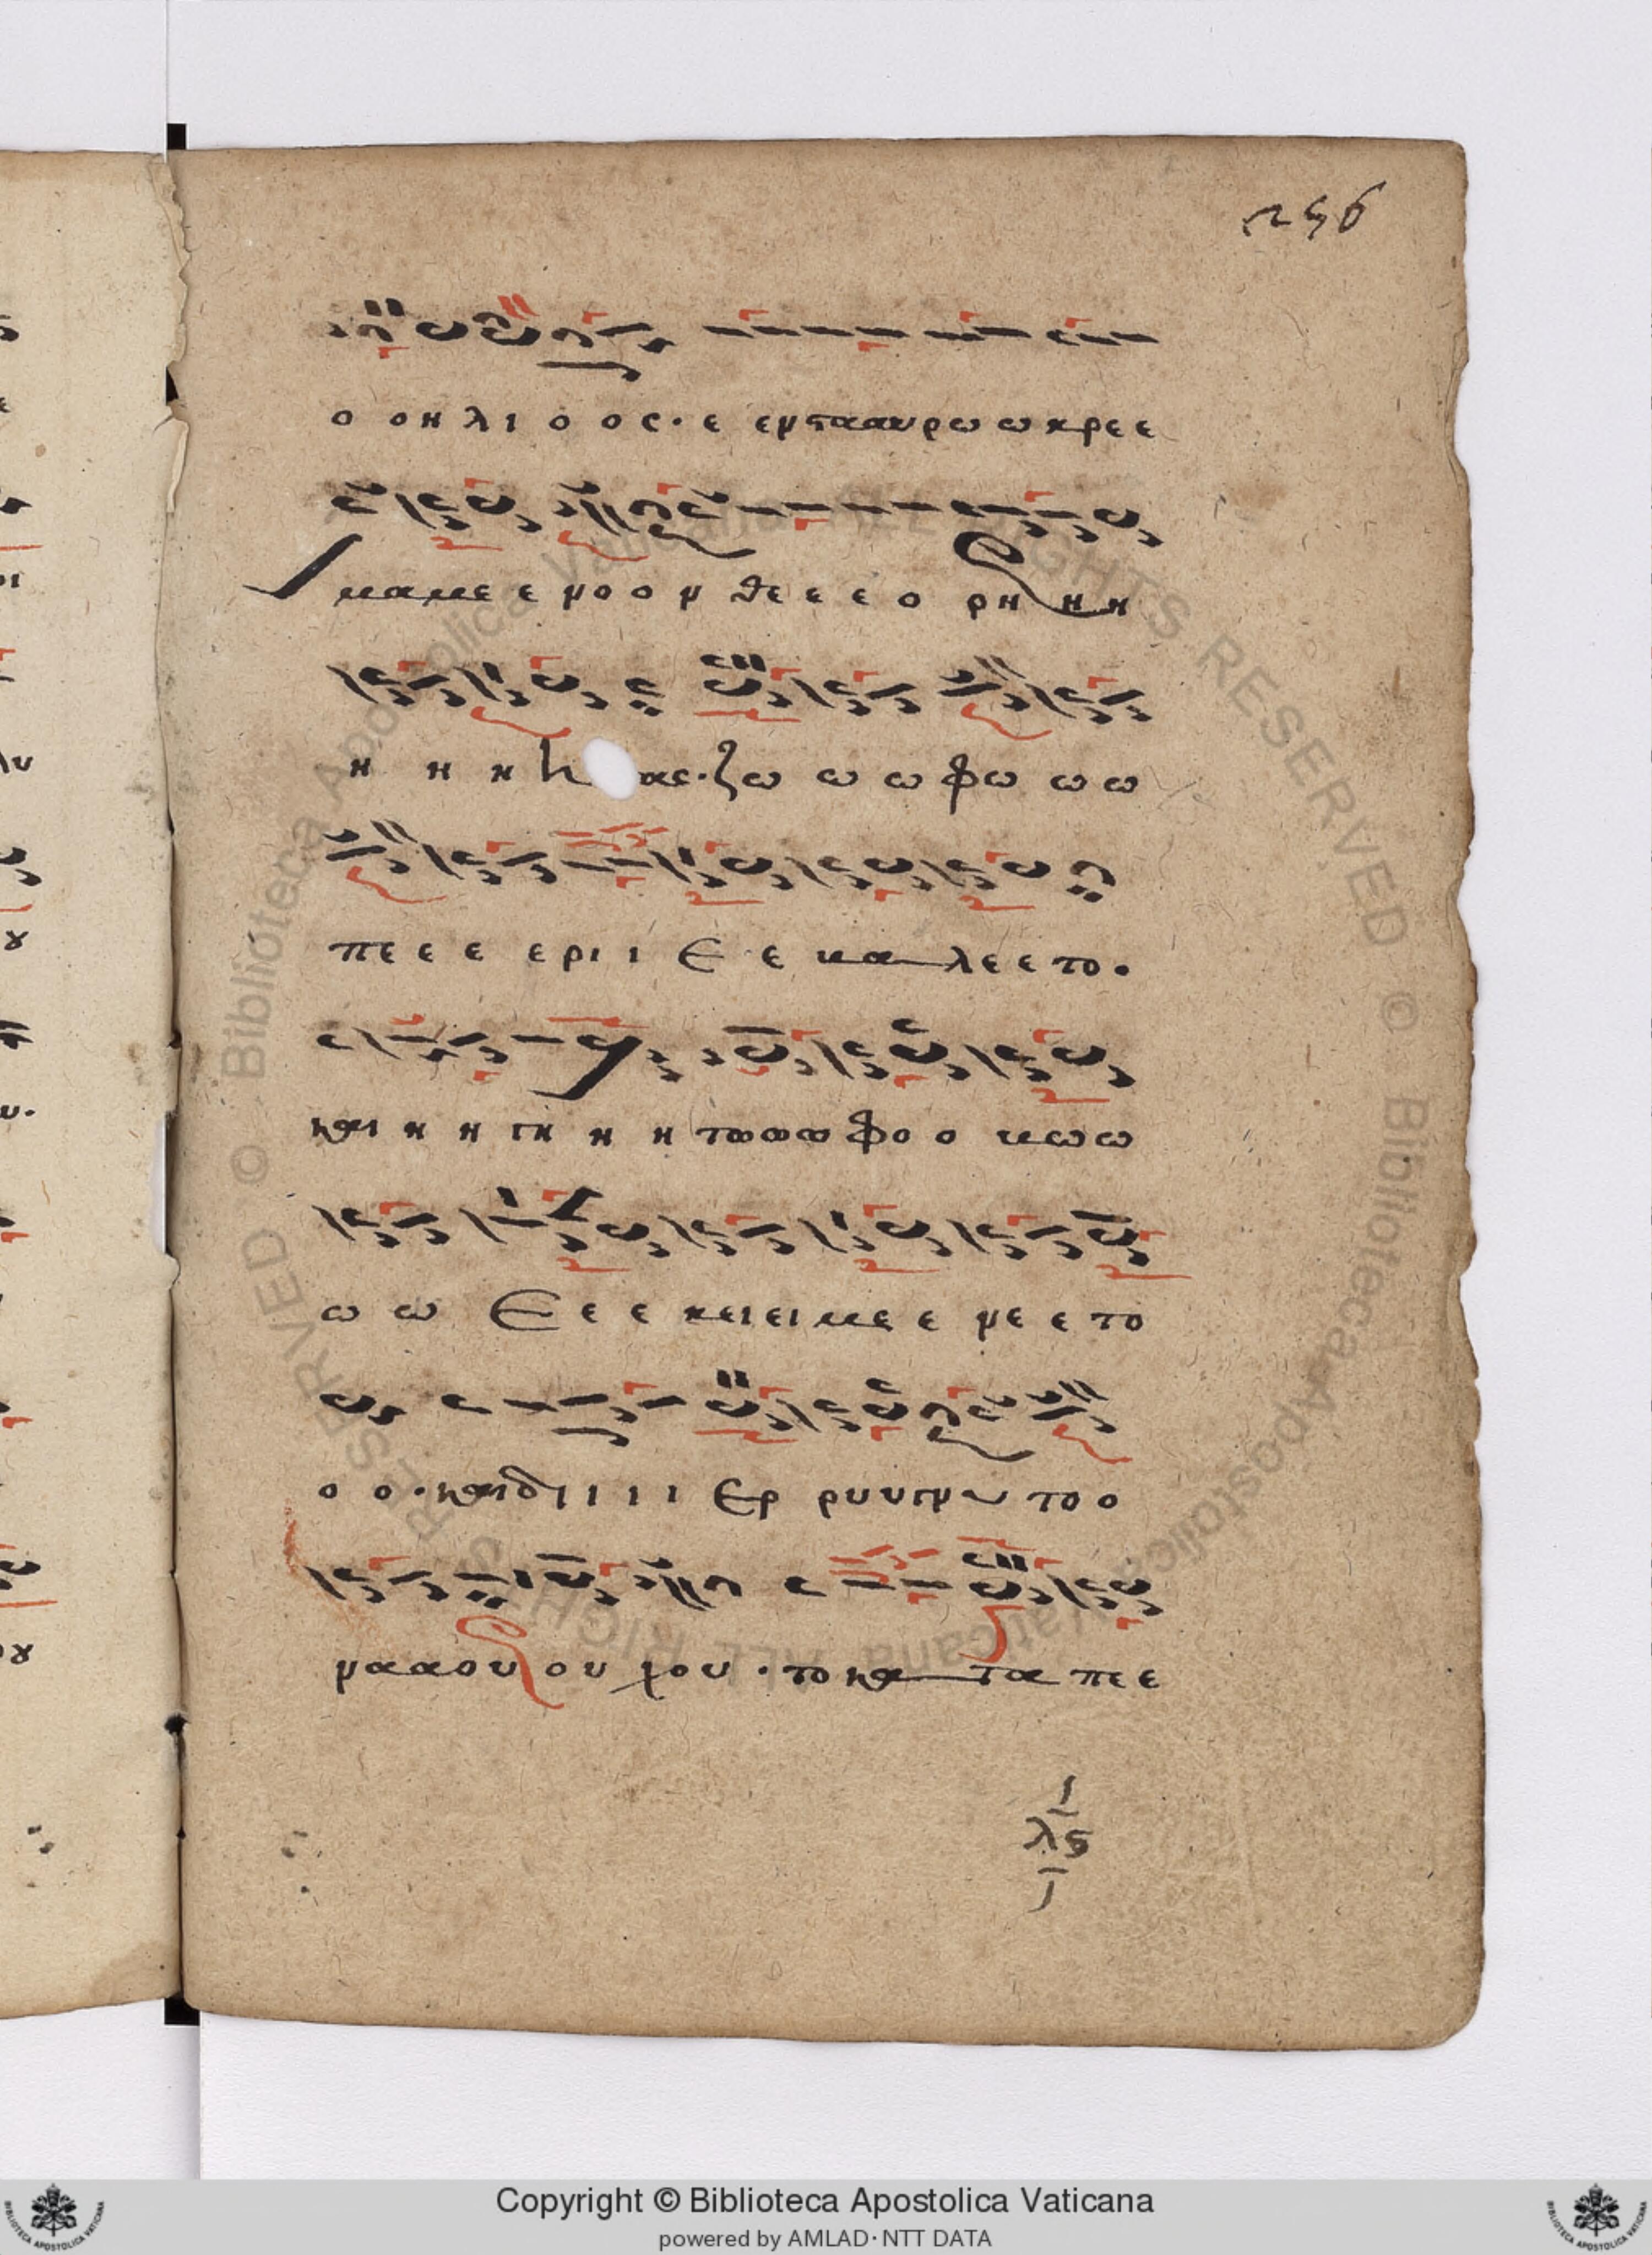 256
ο ο η λ ι ο ο ς · ε εμσταααυρω ω κρε ε
μαμε ε μο ο μ θε ε ε ο ρη η η
η η η η ας · ζω ω ω φω ω ω
πε ε ε ερι ι Ε ε κα λε ε το ·
και η η γη η η τωωω φο ο κω ω
ω ω Ε ε ε κει ει με ε με ε το
ο ο · και δι ι ι ι ι Ερ ρυ υ το ο
μααου ου χου · το κα τα πε ε
λς
Copyright © Biblioteca Apostolica Vaticana
powered by AMLAD · NTT DATA